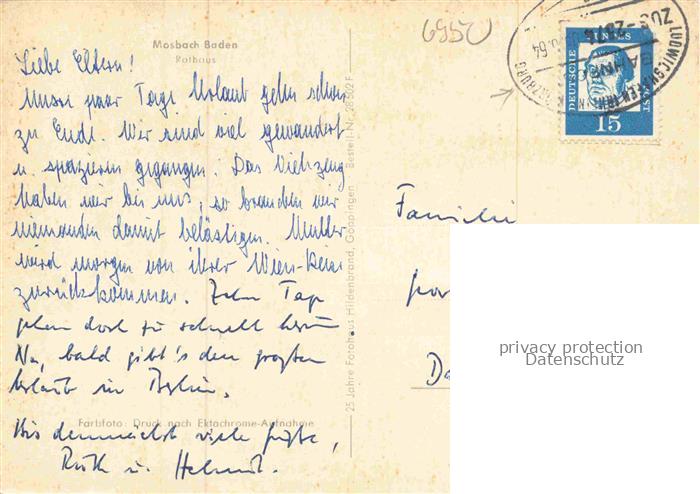 Mosbach Baden
Rathaus
Liebe Eltern!
Unsre paar Tage Urlaub gehn schon
zu Ende. Wir sind viel gewandert
u. spazieren gegangen. Das Viehzeug
haben wir bei uns, so brauchen wir
niemanden damit belästigen. Mutter
wird morgen von ihrer Wien-Reise
zurückkommen. Zehn Tage
gehen doch zu schnell herum.
Na, bald gibt's den großen
Urlaub in Berlin.
Farbfoto: Druck nach Ektachrome-Aufnahme
Bis demnächst viele Grüße,
Ruth u. Helmut.
25 Jahre Fotohaus Hildenbrand, Göppingen
Bestell-Nr.
6950
DEUTSCHE BUNDESPOST
15
BAHNPOST
ZUG
64
Familie
Da
privacy protection
Datenschutz